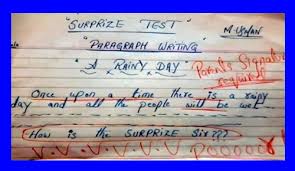 "SURPRIZE TEST"
M. USMAN
"PARAGRAPH WRITING"
"A RAINY DAY"
Parents Signature
required
Once upon a time there is a rainy
day and all the people will be wet
How is the SURPRIZE Sir???
V.V.V.V.V.V Poooooor